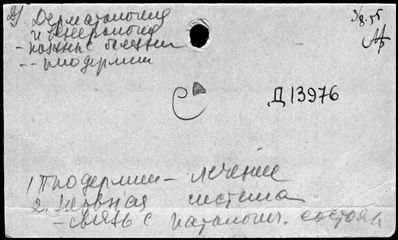 2) Дерматология
и венерология
- кожные болезни
-- пиодермии
3/8.55
С
Д 13976
1 Пиодермии - лечение
2. Нервная система
- связь с патологич. состоян